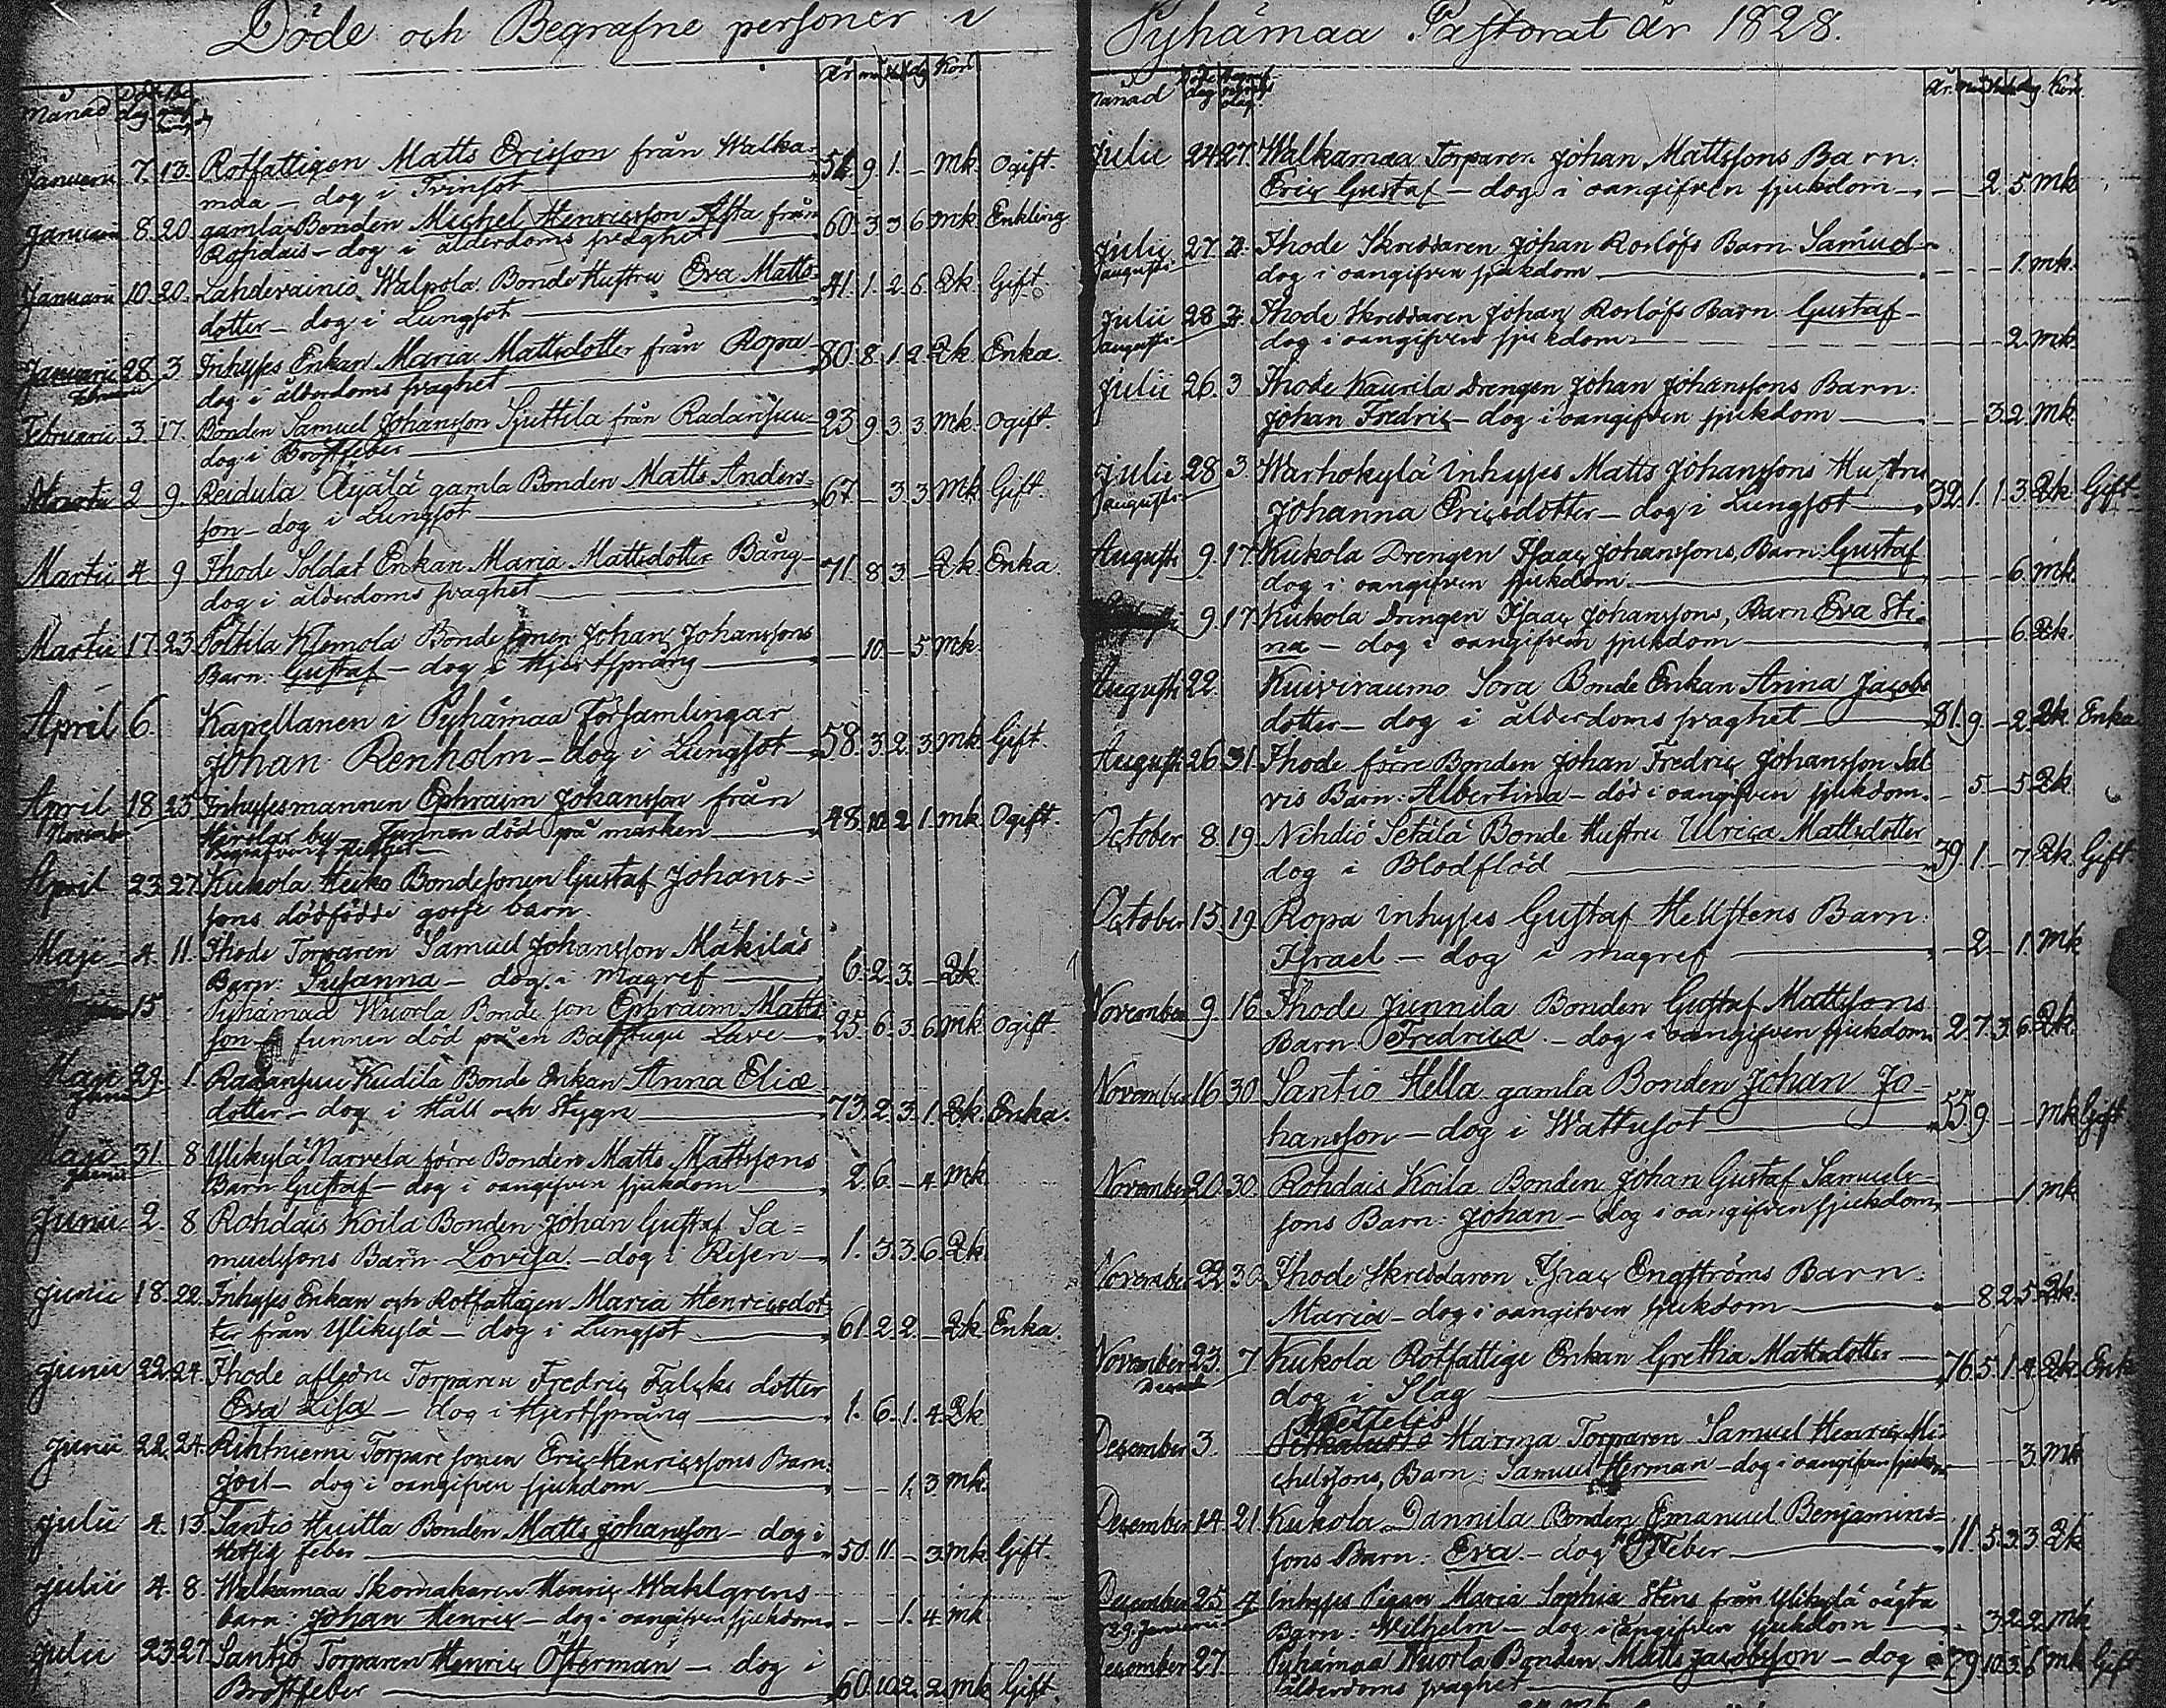 Döde och Begrafne personer i Pyhämaa Pastorat år 1828.
Månad
År Kön
Januarii 7. 13. Rotfattigen Matts Ericsson från Walka- 9. 1. - Mk. Ogift.
maa - dog i Tvinsot
Januarii 8. 20. gamla Bonden Michel Henricsson från 60. 3. 3. 6. Mk. Enkling
Rohdais - dog i ålderdoms svaghet
Januarii 10. 20. Lahdevainio Walpola Bonde Hustru Eva Matts- 41. 1. 2. 6. Qk. Gift.
dotter - dog i Lungsot
Januarii 28. 3. Inhyses Enkan Maria Mattsdotter från Ropa 80. 8. 1. 2. Qk. Enka.
Februarii dog i ålderdoms svaghet
Februarii 3. 17. Bonden Samuel Johansson Sjuttila från Radansuu 23. 9. 3. 3. Mk. Ogift.
dog i Bröstfeber
Martii 2. 9. Reidula Äyälä gamla Bonden Matts Anders- 67. - 3. 3. Mk. Gift.
son - dog i Lungsot
Martii 4. 9. Ihode Soldat Enkan Maria Mattsdotter Bång- 71. 8. 3. - Qk. Enka.
dog i ålderdoms svaghet
Martii 17. 23. Polttila Klemola Bonde sonen Johan Johanssons - 10. - 5. Mk.
Barn: Gustaf - dog i Hjertsprång
April 6. Kapellanen i Pyhämaa Församlingar
Johan Renholm - dog i Lungsot 58. 3. 2. 3. Mk. Gift.
April 18. 25. Inhysesmannen Ephraim Johansson från
by - Funnen död på marken 48. 10. 2. 1. Mk. Ogift.
April 23. 27. Kukola Heiko Bondesonen Gustaf Johans-
sons dödfödde gosse barn.
Maji 4. 11. Ihode Torparen Samuel Johansson Mäkiläs
Barn: Susanna - dog i magref 6. 2. 3. - Qk.
15 Pyhämaa Wuorla Bonde son Ephraim Matts-
son - funnen död på en Badstugu Lave 25. 6. 3. 6. Mk. Ogift.
Maji 29. 1. Radansuu Kudila Bonde Enkan Anna Eliæ
Junii dotter - dog i Håll och Stygn 73. 2. 3. 1. Qk. Enka.
Maji 31. 8. Ylikylä Narvela förre Bonden Matts Mattssons
Junii Barn Gustaf - dog i oangifven sjukdom 2. 6. - 4. Mk.
Junii 2. 8. Rohdais Koila Bonden Johan Gustaf Sa-
muelssons Barn Lovisa - dog i Risen 1. 3. 3. 6. Qk.
Junii 18. 22. Inhyses Enkan och Rotfattigen Maria Henricsdot-
ter från Ylikylä - dog i Lungsot 61. 2. 2. - Qk. Enka.
Junii 22. 24. Ihode afledne Torparen Fredric Falcks dotter
Eva Lisa - dog i Hjertsprång 1. 6. 1. 4. Qk
Junii 22. 24. Rihtniemi Torpare sonen Eric Henricssons Barn:
Joel - dog i oangifven sjukdom - - 1. 3. Mk.
Julii 4. 13. Santio Huitta Bonden Matts Johansson - dog i
Hetsig feber 50. 11. - 3. Mk Gift.
Julii 4. 8. Walkamaa Skomakaren Henric Wahlgrens
barn: Johan Henric - dog i oangifven sjukdom - - 1. 4. Mk
Julii 23. 27. Santio Torparen Henric Österman - dog i
Bröstfeber 60. 10. 2. 2. Mk Gift.
Månad År. Kön.
Julii 24. 27. Walkamaa Torparen Johan Mattssons Barn:
Eric Gustaf - dog i oangifven sjukdom - - 2. 5. Mk
Julii 27. Ihode Skreddaren Johan Rorlöfs Barn Samuel
Augusti dog i oangifven sjukdom 1. Mk.
Julii 28. Ihode Skreddaren Johan Rorlöfs Barn. Gustaf -
Augusti dog i oangifven sjukdom 2. Mk.
Julii 26. 3 Ihode Kaurila Drengen Johan Johanssons Barn:
Johan Fredric - dog i oangifven sjukdom 3. 2. Mk
Julii 28. 3 Warhokylä Inhyses Matts Johanssons Hustru
Augusti Johanna Ericsdotter - dog i Lungsot 32. 1. 1. 3. Qk. Gift
Augusti 9. 17. Kukola Drengen Isaac Johanssons, Barn: Gustaf
dog i oangifven sjukdom. 6. Mk.
9. 17. Kukola Drengen Isaac Johanssons, Barn Eva Sti-
na - dog i oangifven sjukdom 6. Qk.
Augusti 22. Kuiviraumo Sora Bonde Enkan Anna Jacobs
dotter - dog i ålderdoms svaghet 81. 9. - 2. Qk. Enka
Augusti 26. 31. Ihode förre Bonden Johan Fredric Johansson Sal
vis Barn: Albertina - död i oangifven sjukdom. - 5. - 5. Qk.
October 8. 19. Nihdiö Setälä Bonde Hustru Ulrica Mattsdotter
dog i Blodflöd 39. 1. - 7. Qk. Gift
October 15. 19. Ropa Inhyses Gustaf Hellstens Barn:
Israel - dog i magref - 2. - 1. Mk
November 9. 16. Ihode Junnila Bonden Gustaf Mattssons
Barn Fredrica - dog i oangifven sjukdom 2. 7. 3. 6. Qk.
November 16. 30. Santio Hella gamla Bonden Johan Jo-
hansson - dog i Wattusot 55. 9. - - Mk Gift
November 20. 30. Rohdais Koila Bonden Johan Gustaf Samuels-
sons Barn: Johan - dog i oangifven sjukdom 1. Mk
November 22. 30. Ihode Skreddaren Isac Engströms Barn:
Maria - dog i oangifven sjukdom 8. 2. 5. Qk.
November 23. 7 Kukola Rotfattige Enkan Gretha Mattsdotter
dog i Slag 76. 5. 1. 4. Qk. Enk
December 3. Marma Torparen Samuel Henric Mi-
chelssons, Barn: Samuel Herman - dog i oangifven sjukdom 3. Mk
December 14. 21. Kukola Dannila Bonden Emanuel Benjamins-
sons Barn: Eva - dog Feber 11. 5. 3. 3. Qk
December 25. 4. Inhyses Pigan Maria Sophia Stens från Ylikylä oägta
Januarii Barn: Wilhelm - dog i oangifven sjukdom 3. 2. 2. Mk
December 27. Pyhämaa Wuorla Bonden Matts Jacobsson - dog i 79. 10. 3. Mk Gift
ålderdoms svaghet